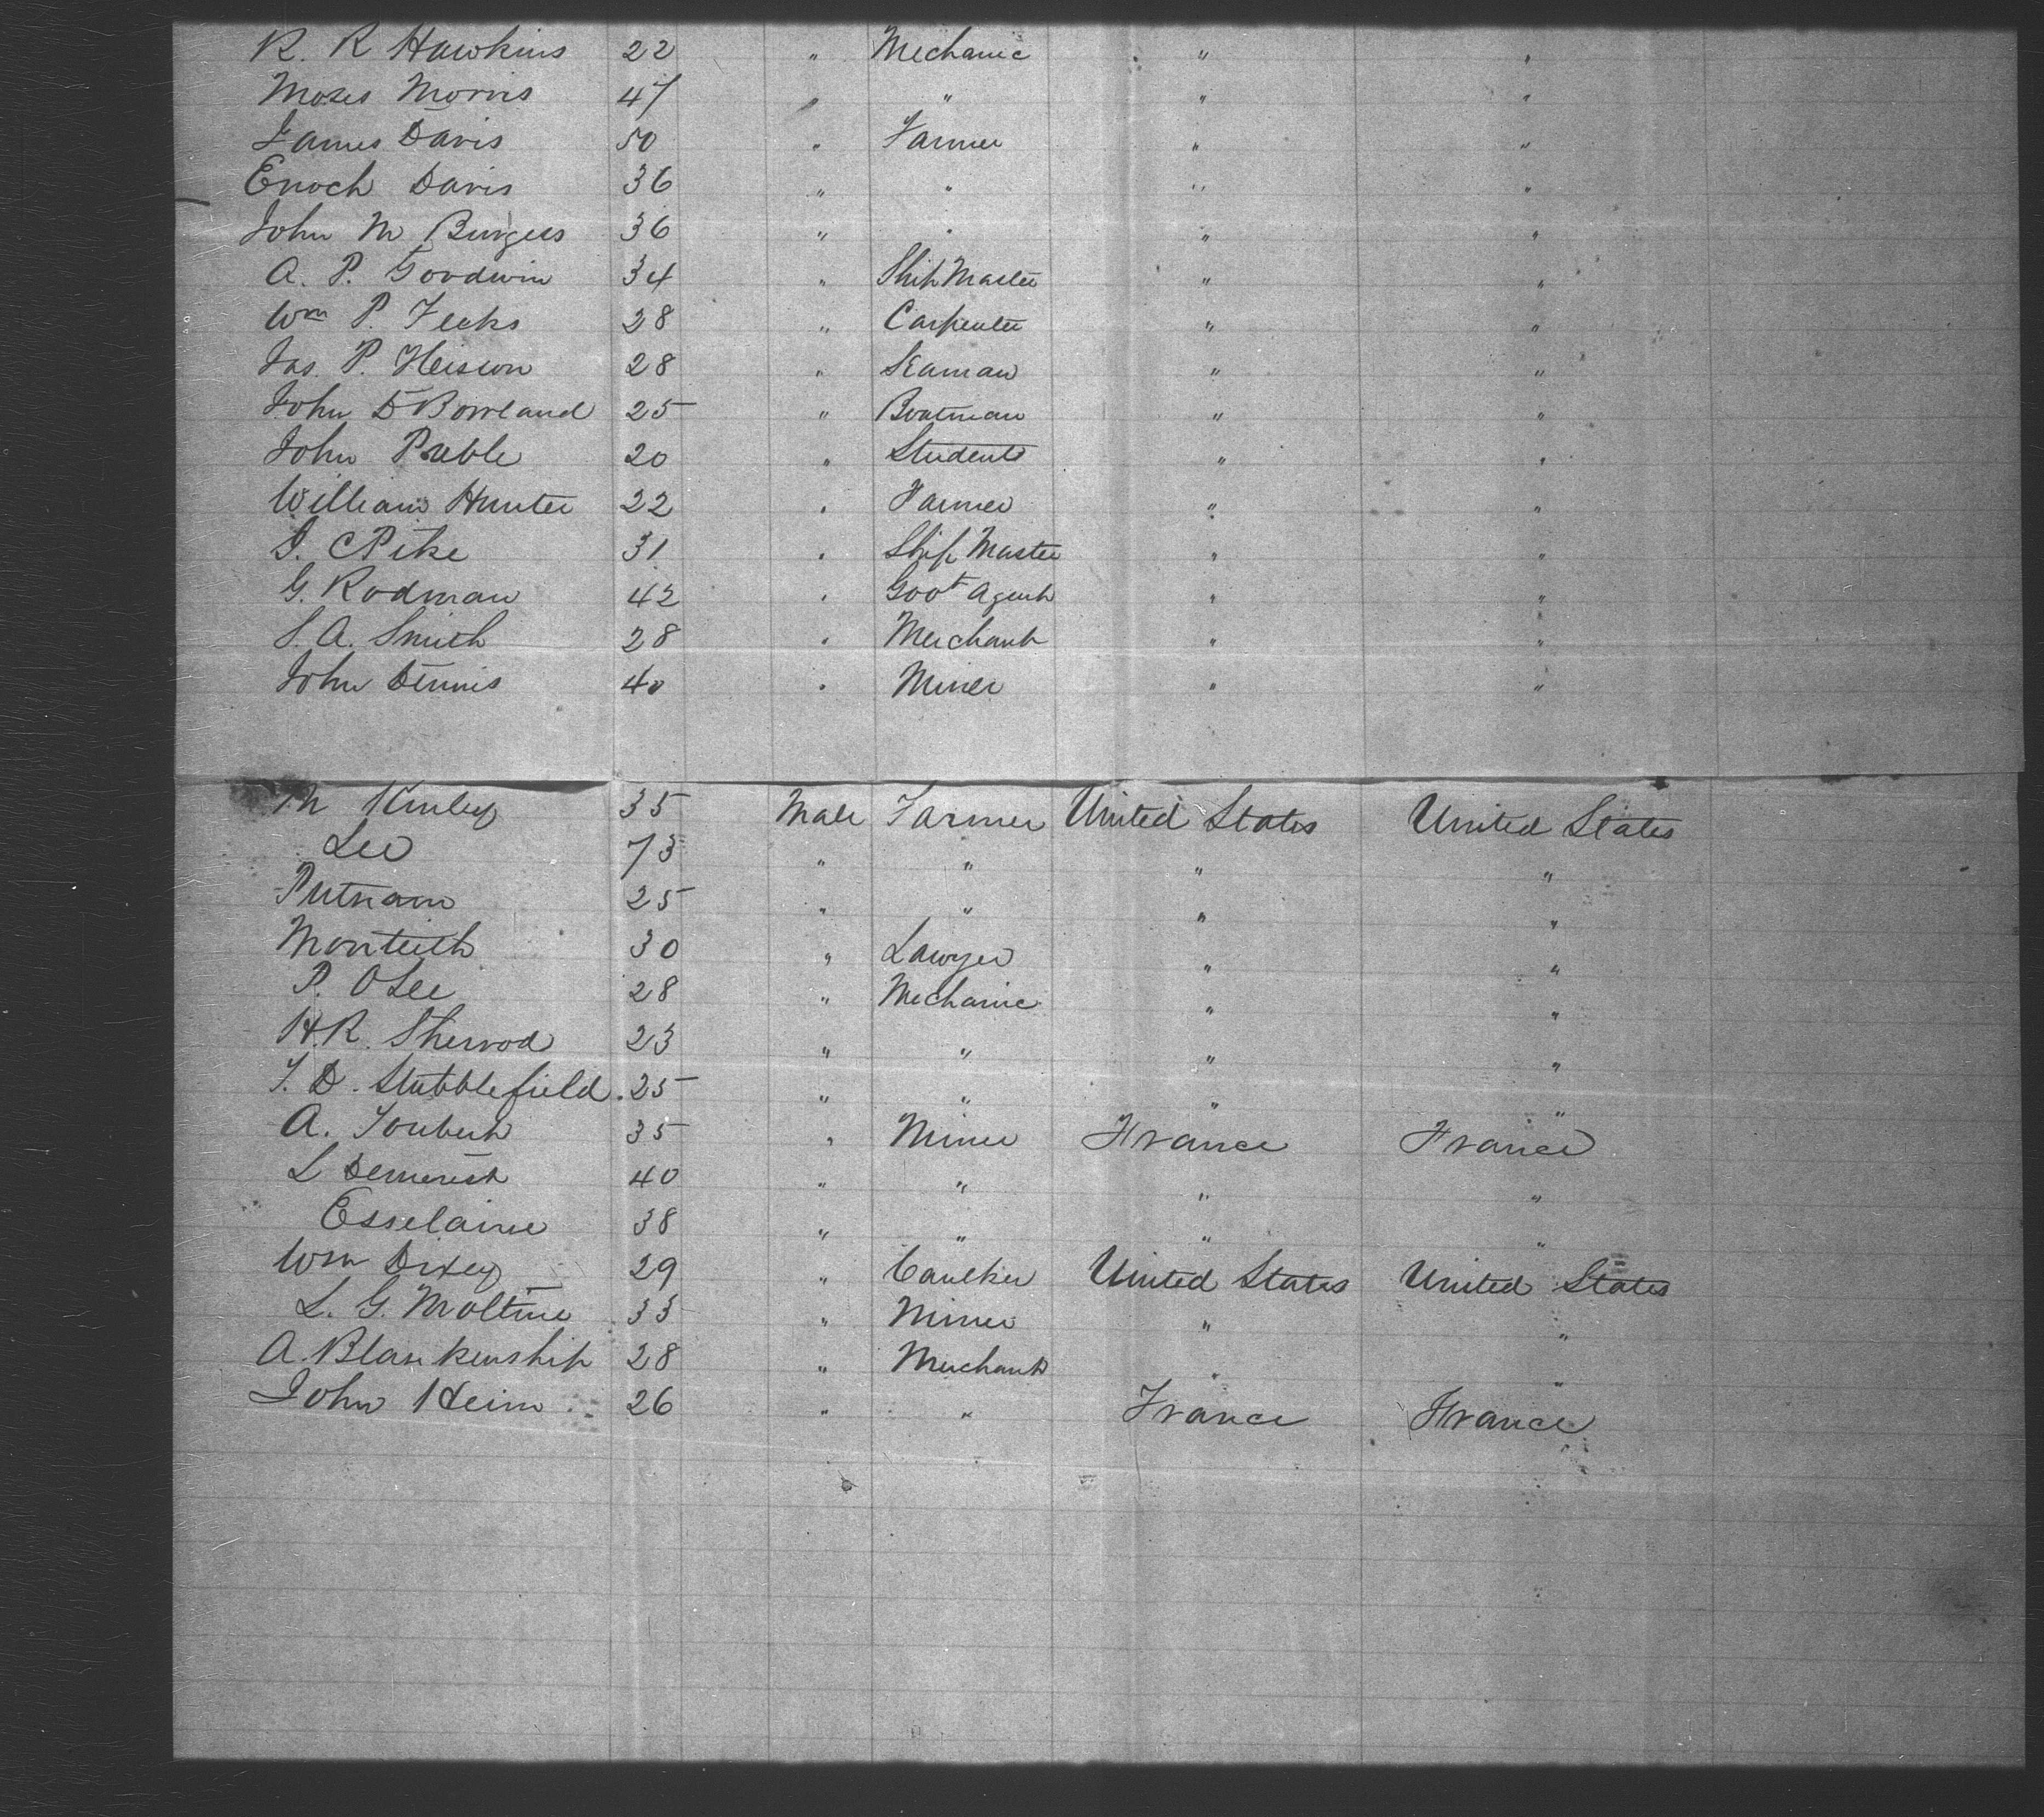 R. R Hawkins 22 " Mechanic " "
Moses Morris 47 " " " "
James Davis 50 " Farmer " "
Enoch Davis 36 " " " "
John M Burgess 36 " " " "
A. P. Goodwin 34 " Ship Master " "
Wm P. Feeks 28 " Carpenter " "
Jas. P. 28 " Seaman " "
John D Borland 25 " Boatman " "
John Preble 20 " Student " "
William Hunter 22 " Farmer " "
J. C Pike 31 " Ship Master " "
G. Rodman 42 " Govt Agent " "
S. A. Smith 28 " Merchant " "
John Dennis 40 " Miner " "
M Kinley 35 Male Farmer United States United States
Lee 73 " " " "
Putnam 25 " " " "
Monteith 30 " Lawyer " "
P. O Lee 28 " Mechanic " "
H. R. Sherrod 23 " " " "
T. D. Stubblefield 25 " " " "
A. Joubert 35 " Miner France France
L 40 " " " "
Esselaine 38 " " " "
Wm Dixey 29 " Caulker United States United States
L. G. 33 " Miner " "
A. Blankenship 28 " Merchant " "
John Heim 26 " " France France